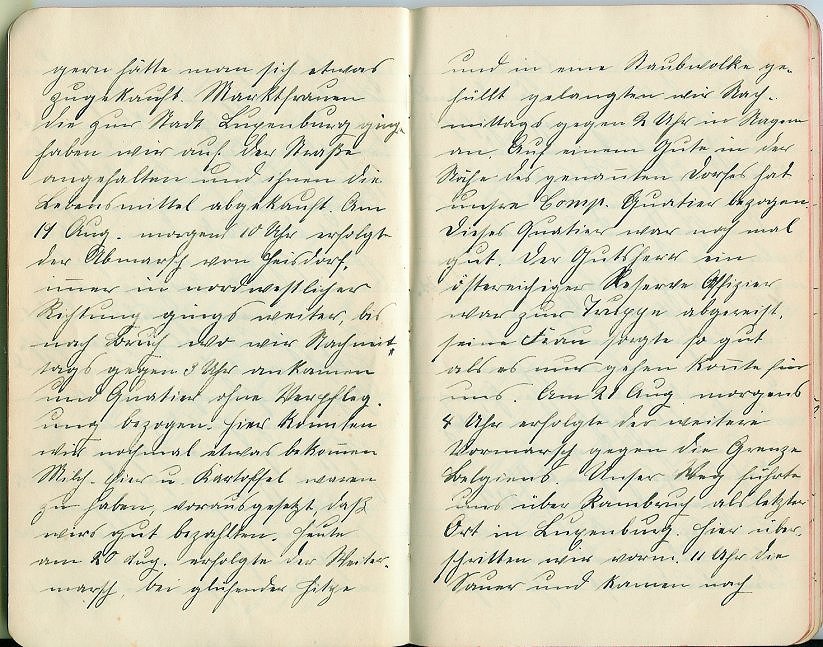 gern hätte man sich etwas
zugekauft. Marktfrauen
die zur Stadt Luxenburg ging.
haben wir auf der Straße
angehalten und ihnen die
Lebensmittel abgekauft. Am
19 Aug. morgens 10 Uhr erfolgte
der Abmarsch von Heisdorf,
immer in nordwestlicher
Richtung gings weiter, bis
nach Bruch wo wir Nachmit=
tags gegen 3 Uhr ankamen
und Quatier ohne Verpfleg.
ung bezogen. Hier konnten
wir nochmal etwas bekommen
Milch. Eier u. Kartoffel waren
zu haben, vorausgesetzt, daß
wirs gut bezahlten. Heute
am 20 Aug. erfolgte der Weiter.
marsch, bei glühender Hitze
und in eine Staubwolke ge-
hüllt gelangten wir Nach-
mittags gegen 2 Uhr in Nagem
an. Auf einem Gute in der
Nähe des genannten Dorfes hat
unsre Comp. Quatier bezogen.
Dieses Quatier war noch mal
gut. Der Gutsherr ein
östereichiger Reserve Offizier
war zur Truppe abgereist.
seine Frau sorgte so gut
als es nur gehen konnte für
uns. Am 21 Aug. morgens
8 Uhr erfolgte der weitere
Vormarsch gegen die Grenze
Belgiens. Unser Weg führte
uns über Rambruch als letzter
Ort in Luxenburg. Hier über.
schritten wir vorm. 11 Uhr die
Sauer und kamen nach